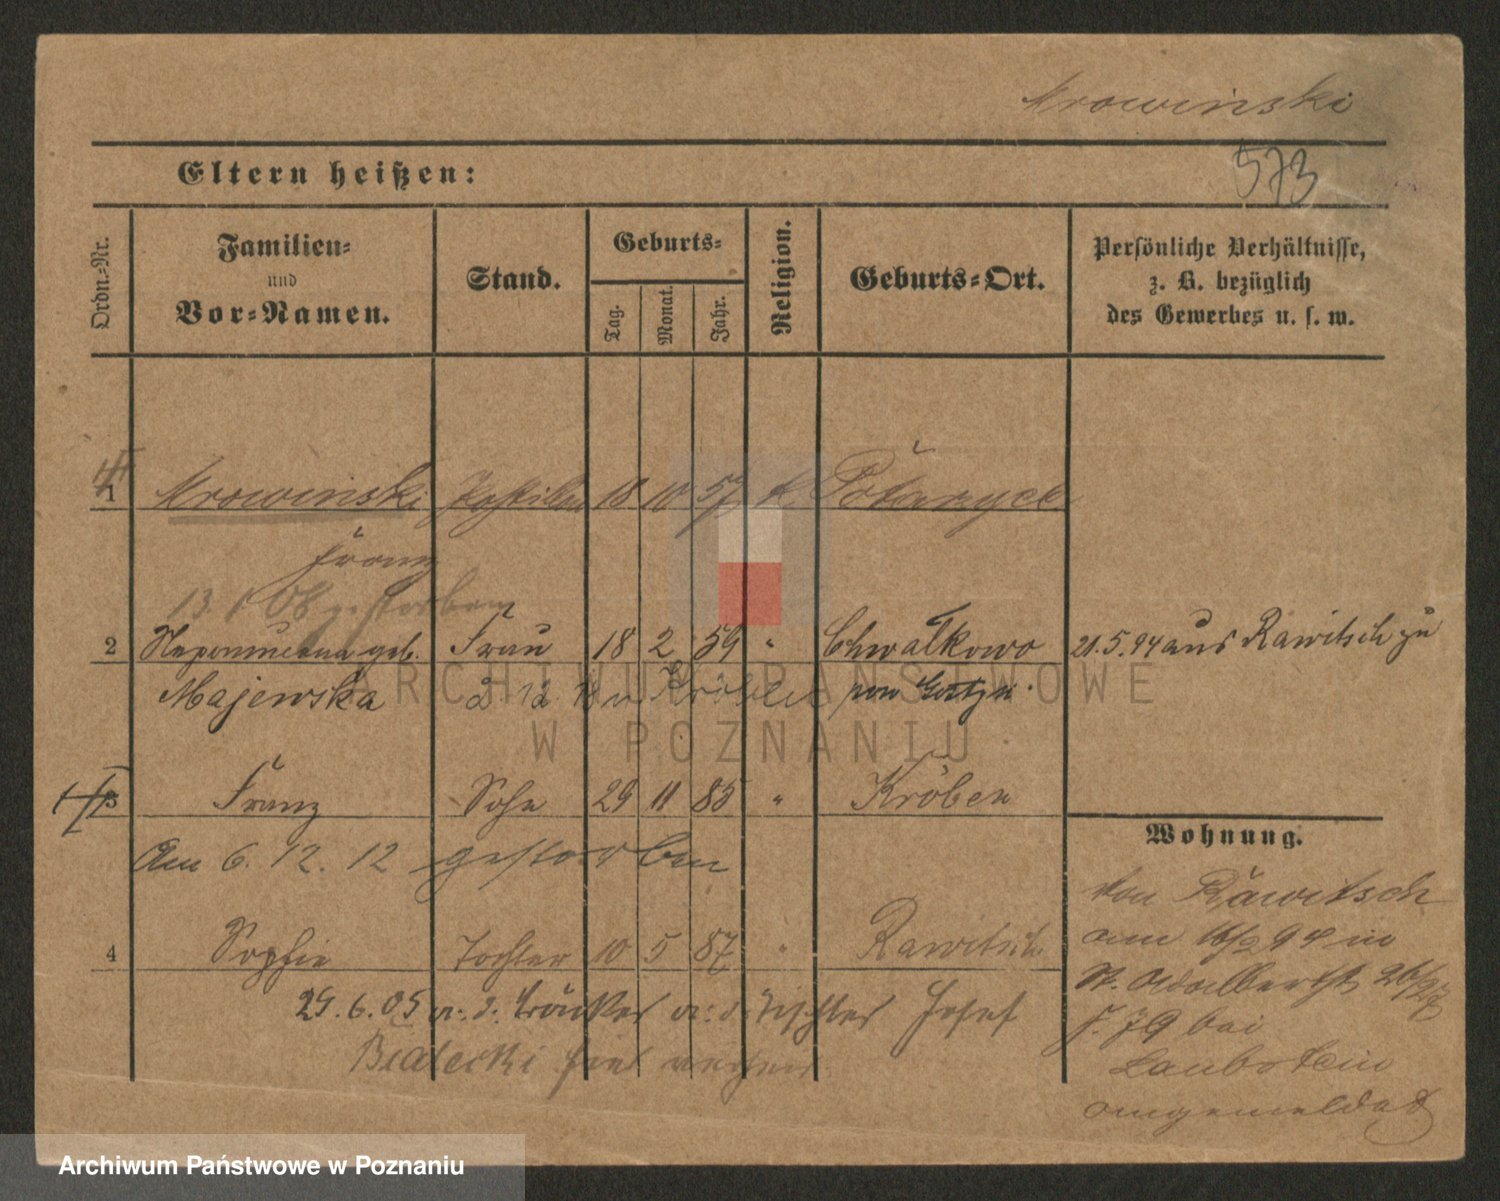 Mrowinski
573
Eltern heißen:
Ordn.-Nr.
Familien-
und
Vor-Namen.
Stand.
Geburts-
Tag.
Monat.
Jahr.
Religion.
Geburts-Ort.
Persönliche Verhältnisse,
z. B. bezüglich
des Gewerbes u. s. w.
1 Mrowinski 18 10 57 k.
Franz
gestorben
2 geb. Frau 18 2 59 " Chwałkowo 21.5.94 aus Rawitsch zu
Majewska
3 Franz Sohn 29 11 85 " Kröben
Am 6. 12. 12 gestorben
Wohnung.
von Rawitsch
am 94 in
4 Sophie Tochter 10 5 87 " Rawitsch
St. Adalbertstr 26/27
29.6.05 Josef
b. J 9 bei
Laubstein
angemeldet
ARCHIWUM PAŃSTWOWE
W POZNANIU
Archiwum Państwowe w Poznaniu